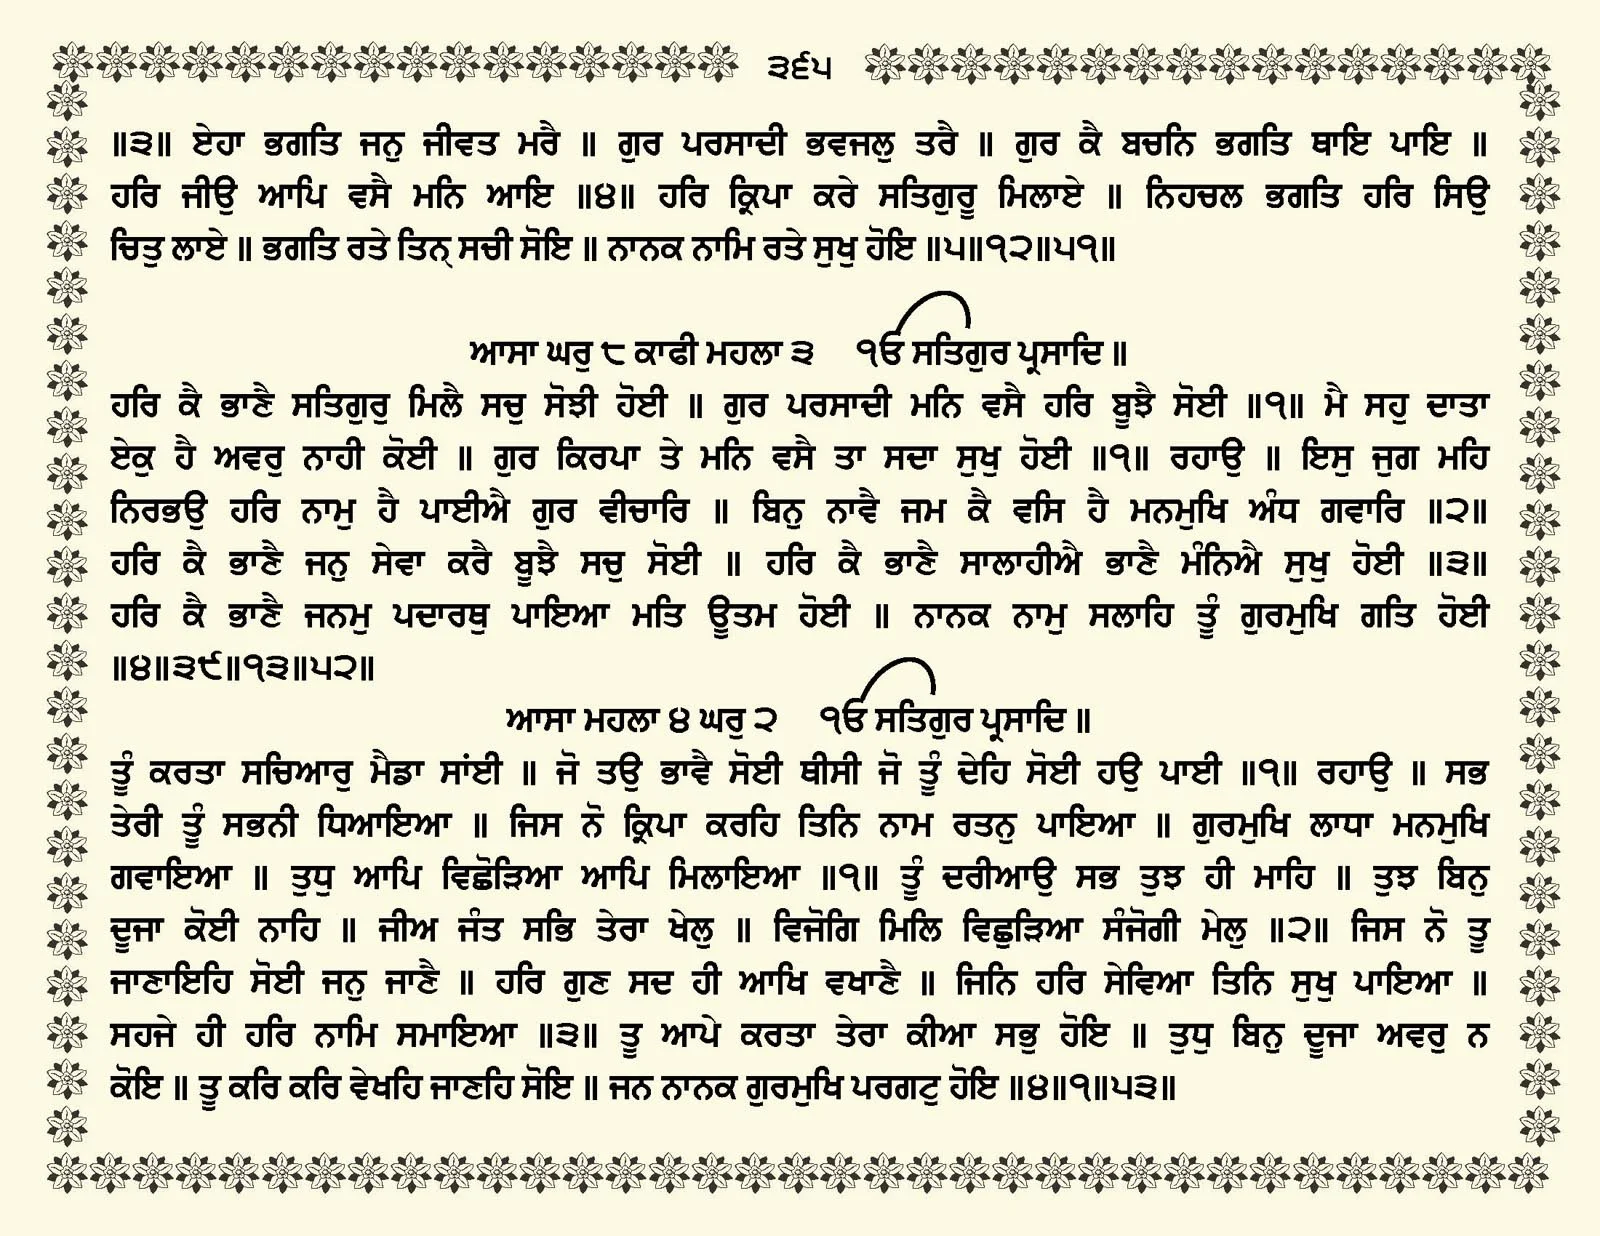 ੩੬੫
॥੩॥ ਏਹਾ ਭਗਤਿ ਜਨੁ ਜੀਵਤ ਮਰੈ ॥ ਗੁਰ ਪਰਸਾਦੀ ਭਵਜਲੁ ਤਰੈ ॥ ਗੁਰ ਕੈ ਬਚਨਿ ਭਗਤਿ ਥਾਇ ਪਾਇ ॥
ਹਰਿ ਜੀਉ ਆਪਿ ਵਸੈ ਮਨਿ ਆਇ ॥੪॥ ਹਰਿ ਕ੍ਰਿਪਾ ਕਰੇ ਸਤਿਗੁਰੂ ਮਿਲਾਏ ॥ ਨਿਹਚਲ ਭਗਤਿ ਹਰਿ ਸਿਉ
ਚਿਤੁ ਲਾਏ ॥ ਭਗਤਿ ਰਤੇ ਤਿਨ੍ ਸਚੀ ਸੋਇ ॥ ਨਾਨਕ ਨਾਮਿ ਰਤੇ ਸੁਖੁ ਹੋਇ ॥੫॥੧੨॥੫੧॥
ਆਸਾ ਘਰੁ ੮ ਕਾਫੀ ਮਹਲਾ ੩ ੴ ਸਤਿਗੁਰ ਪ੍ਰਸਾਦਿ ॥
ਹਰਿ ਕੈ ਭਾਣੈ ਸਤਿਗੁਰੁ ਮਿਲੈ ਸਚੁ ਸੋਝੀ ਹੋਈ ॥ ਗੁਰ ਪਰਸਾਦੀ ਮਨਿ ਵਸੈ ਹਰਿ ਬੂਝੈ ਸੋਈ ॥੧॥ ਮੈ ਸਹੁ ਦਾਤਾ
ਏਕੁ ਹੈ ਅਵਰੁ ਨਾਹੀ ਕੋਈ ॥ ਗੁਰ ਕਿਰਪਾ ਤੇ ਮਨਿ ਵਸੈ ਤਾ ਸਦਾ ਸੁਖੁ ਹੋਈ ॥੧॥ ਰਹਾਉ ॥ ਇਸੁ ਜੁਗ ਮਹਿ
ਨਿਰਭਉ ਹਰਿ ਨਾਮੁ ਹੈ ਪਾਈਐ ਗੁਰ ਵੀਚਾਰਿ ॥ ਬਿਨੁ ਨਾਵੈ ਜਮ ਕੈ ਵਸਿ ਹੈ ਮਨਮੁਖਿ ਅੰਧ ਗਵਾਰਿ ॥੨॥
ਹਰਿ ਕੈ ਭਾਣੈ ਜਨੁ ਸੇਵਾ ਕਰੈ ਬੂਝੈ ਸਚੁ ਸੋਈ ॥ ਹਰਿ ਕੈ ਭਾਣੈ ਸਾਲਾਹੀਐ ਭਾਣੈ ਮੰਨਿਐ ਸੁਖੁ ਹੋਈ ॥੩॥
ਹਰਿ ਕੈ ਭਾਣੈ ਜਨਮੁ ਪਦਾਰਥੁ ਪਾਇਆ ਮਤਿ ਊਤਮ ਹੋਈ ॥ ਨਾਨਕ ਨਾਮੁ ਸਲਾਹਿ ਤੂੰ ਗੁਰਮੁਖਿ ਗਤਿ ਹੋਈ
॥੪॥੩੯॥੧੩॥੫੨॥
ਆਸਾ ਮਹਲਾ ੪ ਘਰੁ ੨ ੴ ਸਤਿਗੁਰ ਪ੍ਰਸਾਦਿ ॥
ਤੂੰ ਕਰਤਾ ਸਚਿਆਰੁ ਮੈਡਾ ਸਾਂਈ ॥ ਜੋ ਤਉ ਭਾਵੈ ਸੋਈ ਥੀਸੀ ਜੋ ਤੂੰ ਦੇਹਿ ਸੋਈ ਹਉ ਪਾਈ ॥੧॥ ਰਹਾਉ ॥ ਸਭ
ਤੇਰੀ ਤੂੰ ਸਭਨੀ ਧਿਆਇਆ ॥ ਜਿਸ ਨੋ ਕ੍ਰਿਪਾ ਕਰਹਿ ਤਿਨਿ ਨਾਮ ਰਤਨੁ ਪਾਇਆ ॥ ਗੁਰਮੁਖਿ ਲਾਧਾ ਮਨਮੁਖਿ
ਗਵਾਇਆ ॥ ਤੁਧੁ ਆਪਿ ਵਿਛੋੜਿਆ ਆਪਿ ਮਿਲਾਇਆ ॥੧॥ ਤੂੰ ਦਰੀਆਉ ਸਭ ਤੁਝ ਹੀ ਮਾਹਿ ॥ ਤੁਝ ਬਿਨੁ
ਦੂਜਾ ਕੋਈ ਨਾਹਿ ॥ ਜੀਅ ਜੰਤ ਸਭਿ ਤੇਰਾ ਖੇਲੁ ॥ ਵਿਜੋਗਿ ਮਿਲਿ ਵਿਛੁੜਿਆ ਸੰਜੋਗੀ ਮੇਲੁ ॥੨॥ ਜਿਸ ਨੋ ਤੂ
ਜਾਣਾਇਹਿ ਸੋਈ ਜਨੁ ਜਾਣੈ ॥ ਹਰਿ ਗੁਣ ਸਦ ਹੀ ਆਖਿ ਵਖਾਣੈ ॥ ਜਿਨਿ ਹਰਿ ਸੇਵਿਆ ਤਿਨਿ ਸੁਖੁ ਪਾਇਆ ॥
ਸਹਜੇ ਹੀ ਹਰਿ ਨਾਮਿ ਸਮਾਇਆ ॥੩॥ ਤੂ ਆਪੇ ਕਰਤਾ ਤੇਰਾ ਕੀਆ ਸਭੁ ਹੋਇ ॥ ਤੁਧੁ ਬਿਨੁ ਦੂਜਾ ਅਵਰੁ ਨ
ਕੋਇ ॥ ਤੂ ਕਰਿ ਕਰਿ ਵੇਖਹਿ ਜਾਣਹਿ ਸੋਇ ॥ ਜਨ ਨਾਨਕ ਗੁਰਮੁਖਿ ਪਰਗਟੁ ਹੋਇ ॥੪॥੧॥੫੩॥